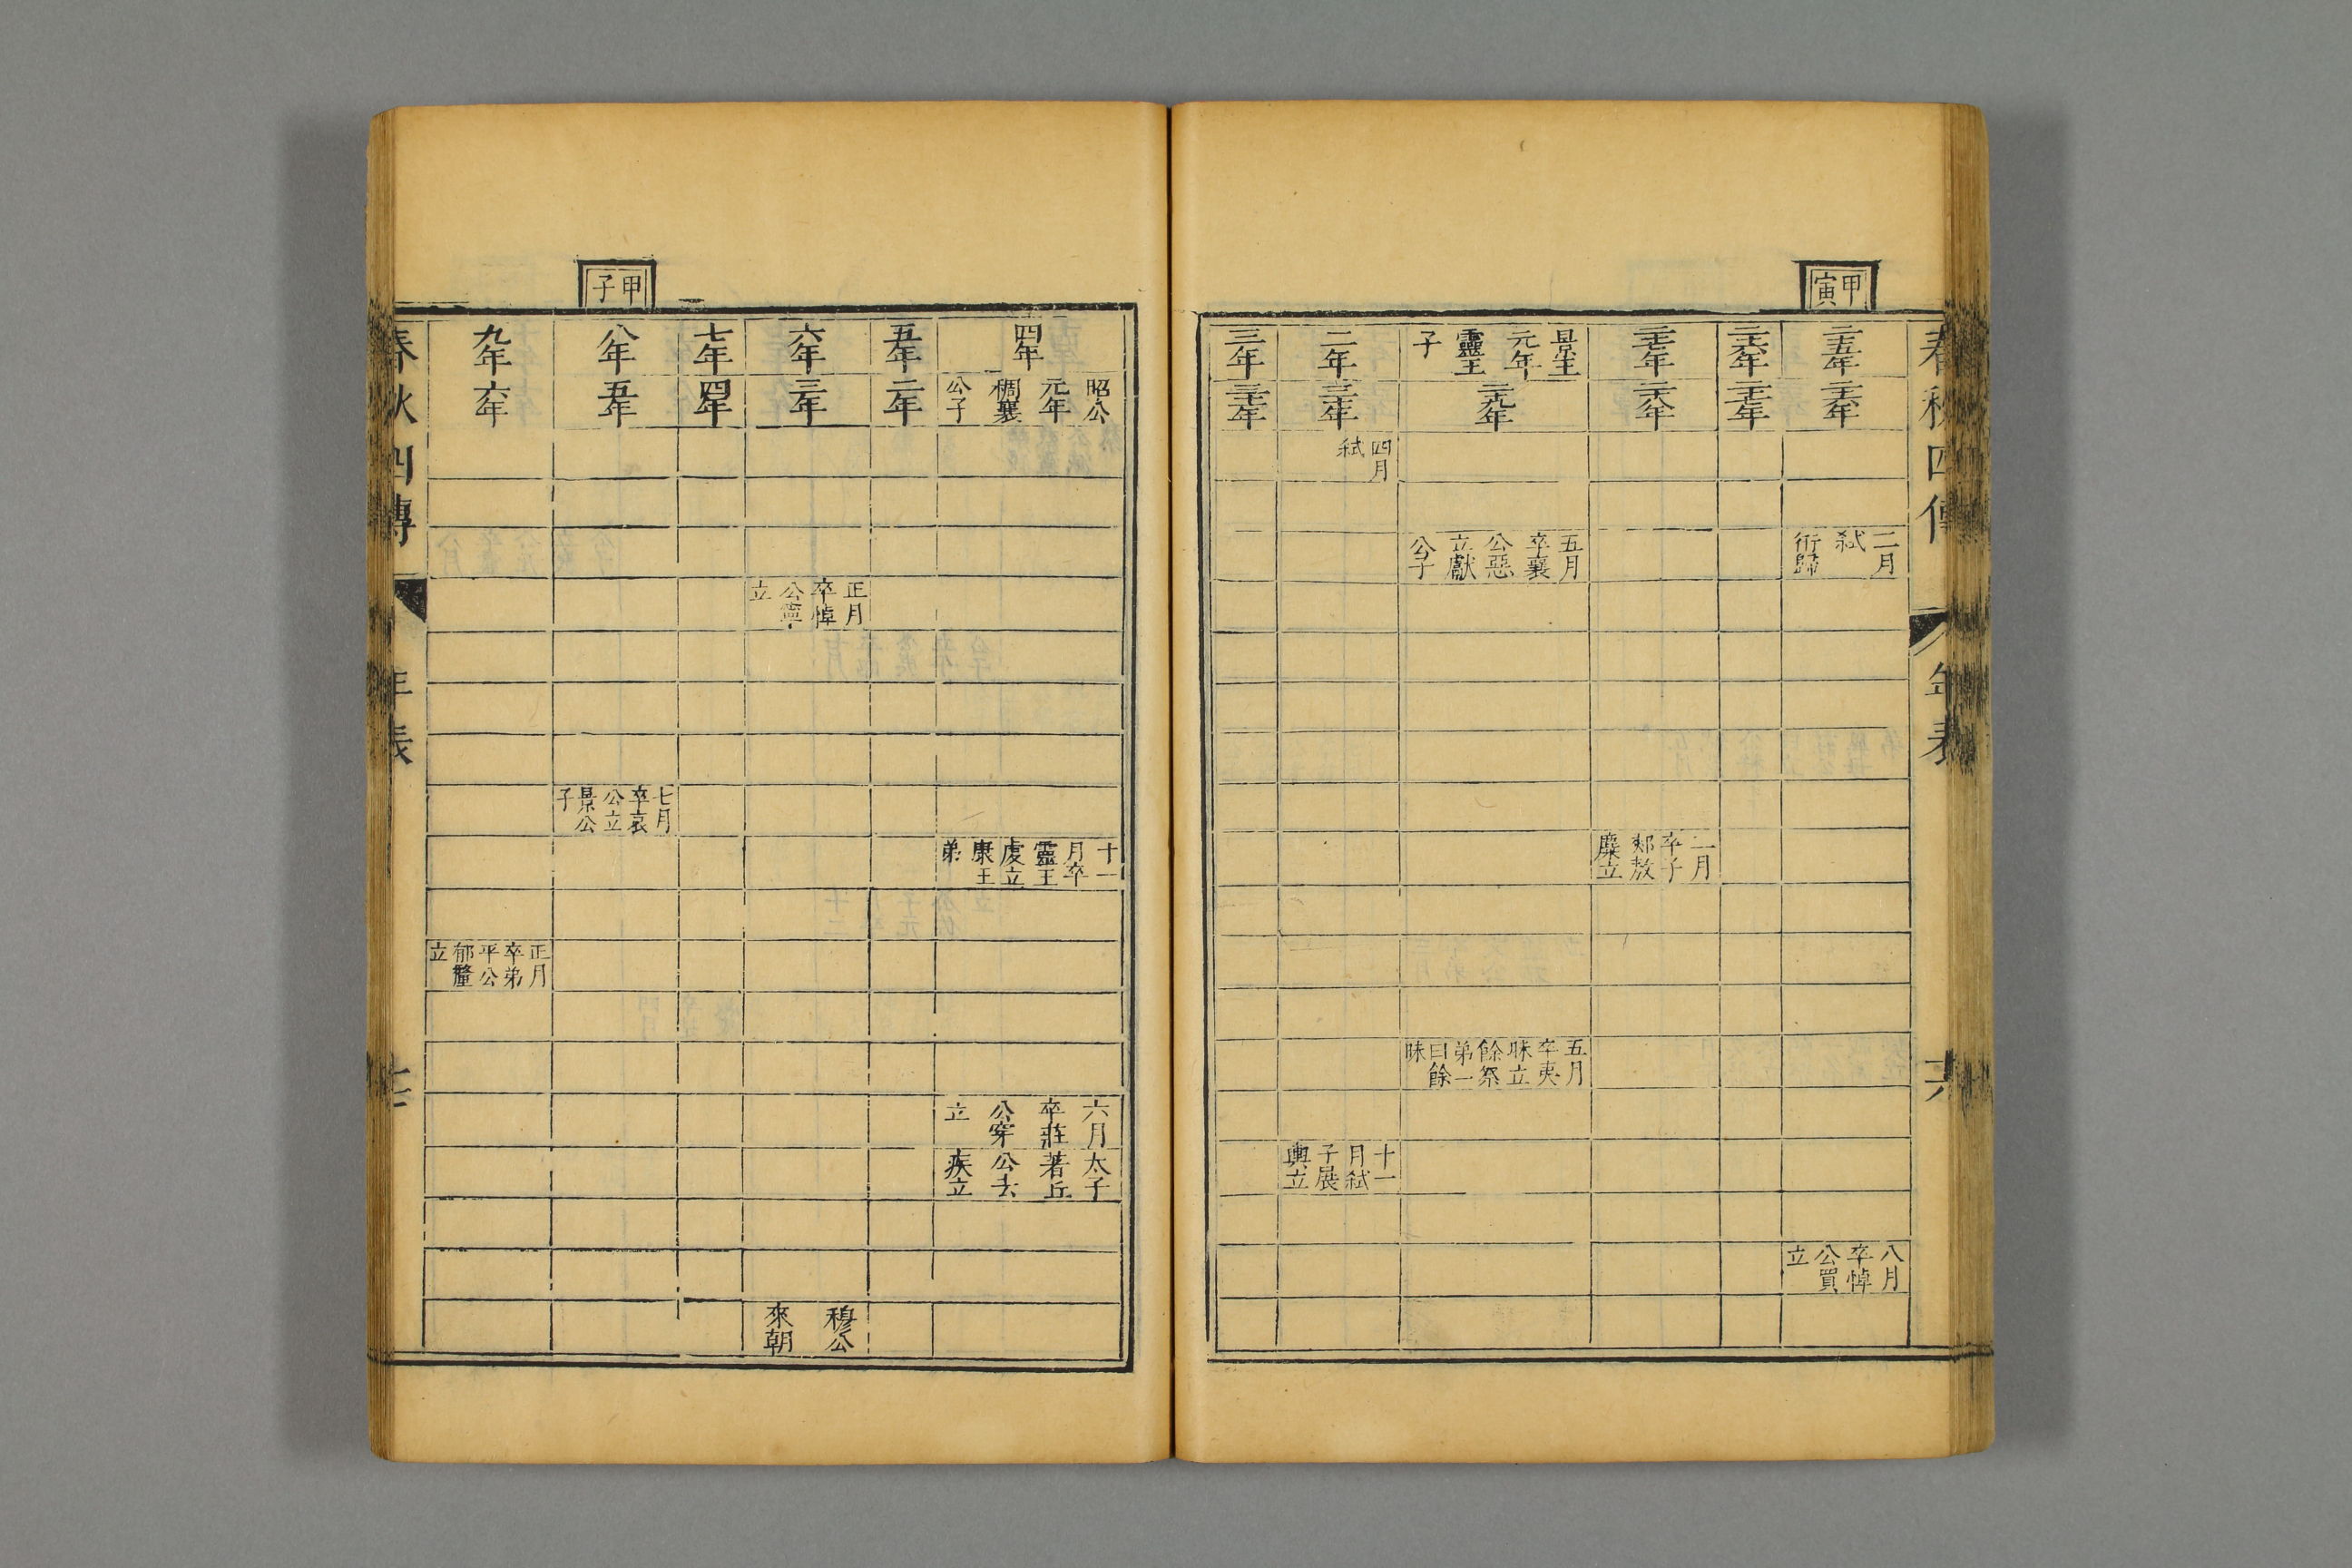 甲寅
春秋四傳
年表
六
二十五年
二十六年
二月
弒
衎歸
八月
卒悼
公買
立
二十六年
二十七年
二十七年
二十八年
二月
卒子
郟敖
麇立
景王
元年
靈王
子
二十九年
五月
卒襄
公惡
立獻
公子
五月
卒夷
昧立
餘祭
弟一
曰餘
昧
二年
三十年
四月
弒
十一
月弒
子展
輿立
三年
三十一年
四年
昭公
元年
稠襄
公子
十一
月卒
靈王
虔立
康王
弟
六月
卒莊
公穿
立
太子
著丘
公去
疾立
五年
二年
六年
三年
正月
卒悼
公寧
立
穆公
來朝
七年
四年
甲子
八年
五年
七月
卒哀
公立
景公
子
九年
六年
正月
卒弟
平公
郁釐
立
春秋四傳
年表